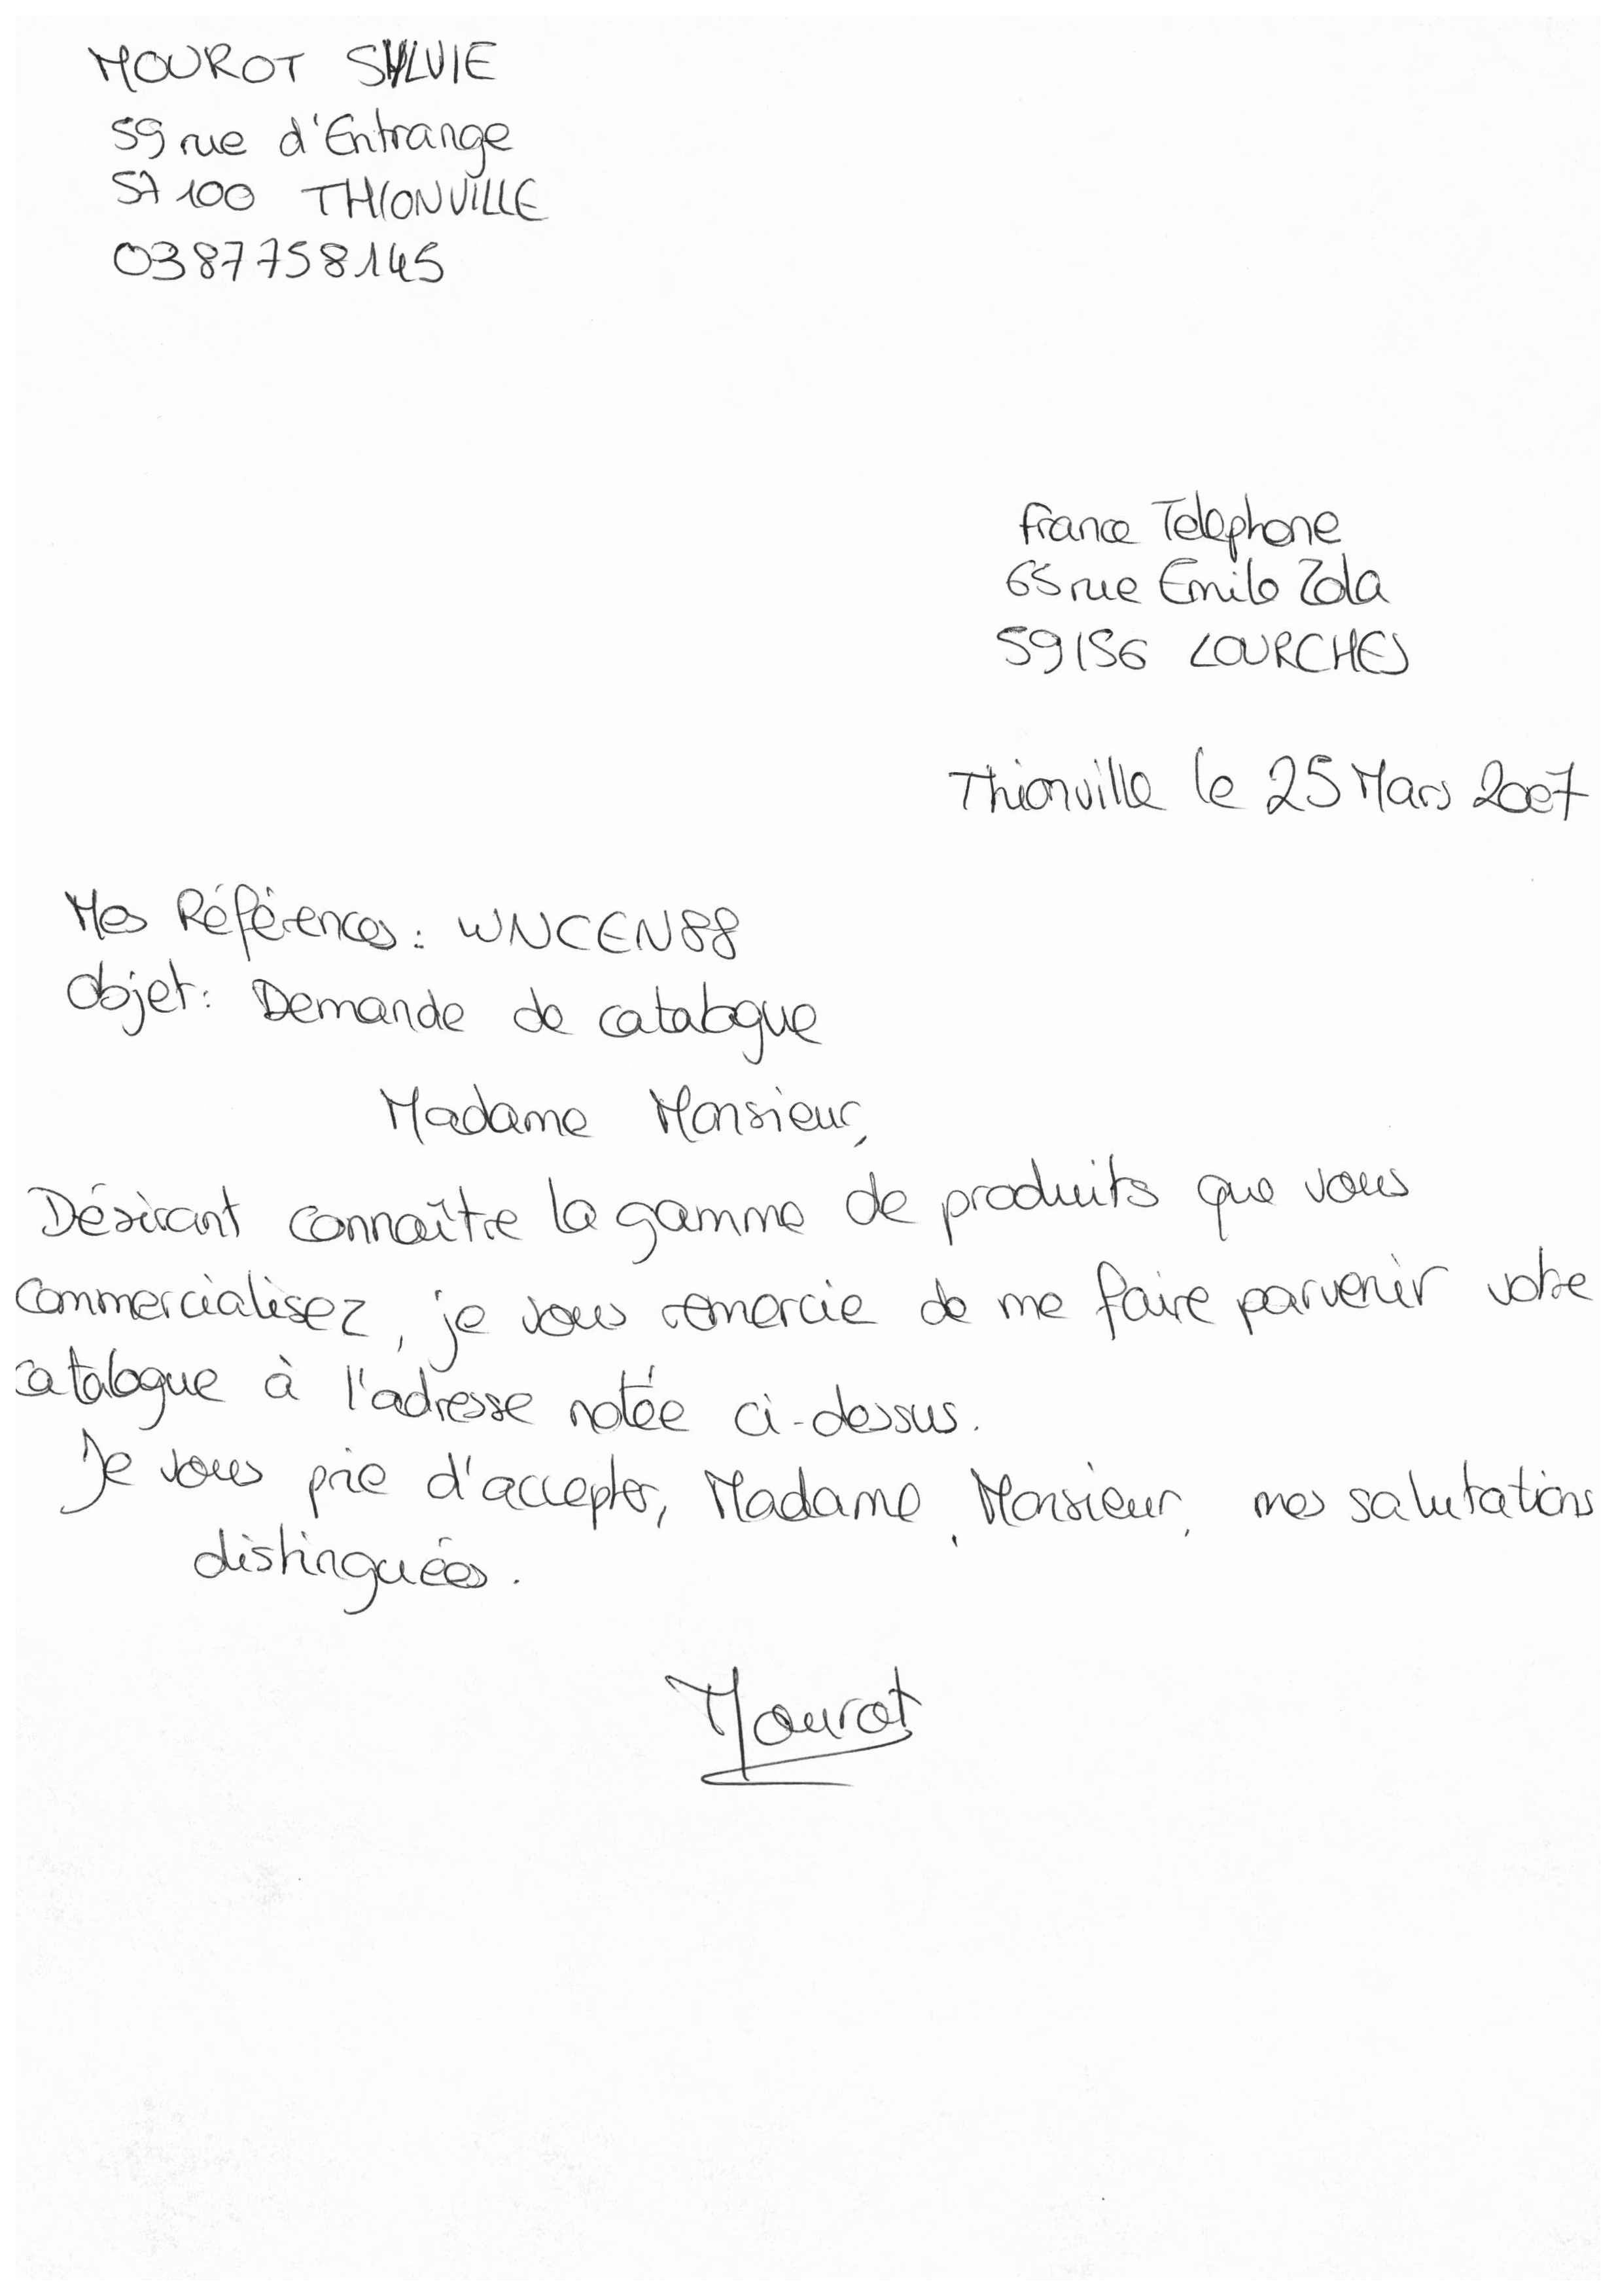 MOUROT SYLVIE
59 rue d'Entrange
57100 THIONVILLE
0387758145
France Telephone
65 rue Emile Zola
59156 LOURCHES
Thionville le 25 Mars 2007
Mes Références : WNCEN88
Objet : Demande de catalogue
Madame Monsieur,
Désirant connaître la gamme de produits que vous
commercialisez, je vous remercie de me faire parvenir votre
catalogue à l'adresse notée ci-dessus.
Je vous prie d'accepter, Madame, Monsieur, mes salutations
distinguées.
Mourot